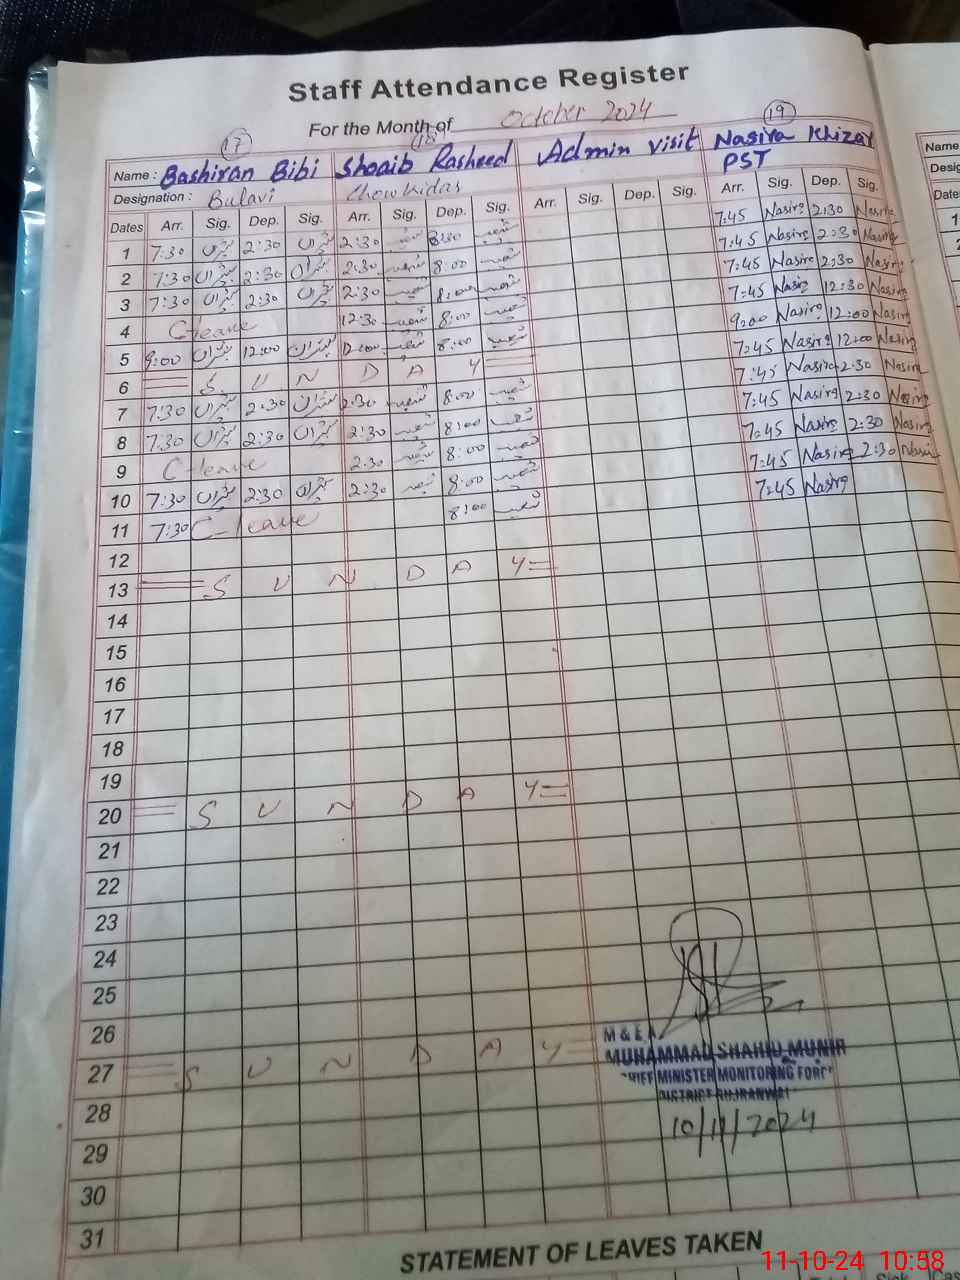 Staff Attendance Register
For the Month of October 2024
17 18 19
Name : Bashiran Bibi Shoaib Rasheed Admin visit Nasira Khizar
Designation : Bulavi Chowkidar PST
Dates Arr. Sig. Dep. Sig. Arr. Sig. Dep. Sig. Arr. Sig. Sig. Arr. Sig. Dep. Sig.
1 7:30 بشراں 2:30 بشراں 2:30 شعیب 8:00 شعیب 7:45 Nasira 2:30 Nasira
2 7:30 بشراں 2:30 بشراں 2:30 شعیب 8:00 شعیب 7:45 Nasira 2:30 Nasira
3 7:30 بشراں 2:30 بشراں 2:30 شعیب 8:00 شعیب 7:45 Nasira 2:30 Nasira
4 C-leave 12:30 شعیب 8:00 شعیب 7:45 Nasira 12:30 Nasira
5 9:00 بشراں 12:00 بشراں 12:00 شعیب 8:00 شعیب 9:00 Nasira 12:00 Nasira
6 S U N D A Y 7:45 Nasira 12:00 Nasira
7 7:30 بشراں 2:30 بشراں 2:30 شعیب 8:00 شعیب 7:45 Nasira 2:30 Nasira
8 7:30 بشراں 2:30 بشراں 2:30 شعیب 8:00 شعیب 7:45 Nasira 2:30 Nasira
9 C-leave 2:30 شعیب 8:00 شعیب 7:45 Nasira 2:30 Nasira
10 7:30 بشراں 2:30 بشراں 2:30 شعیب 8:00 شعیب 7:45 Nasira 2:30 Nasira
11 7:30 C-leave 8:00 شعیب 7:45 Nasira
12
13 S U N D A Y
14
15
16
17
18
19
20 S U N D A Y
21
22
23
24
25
26
27 S U N D A Y
M & E A
MUHAMMAD SHAHID MUNIR
CHIEF MINISTER MONITORING FORCE
DISTRICT GUJRANWALA
10/11/2024
28
29
30
31
STATEMENT OF LEAVES TAKEN
11-10-24 10:58
Name
Desig
Dates
1
2